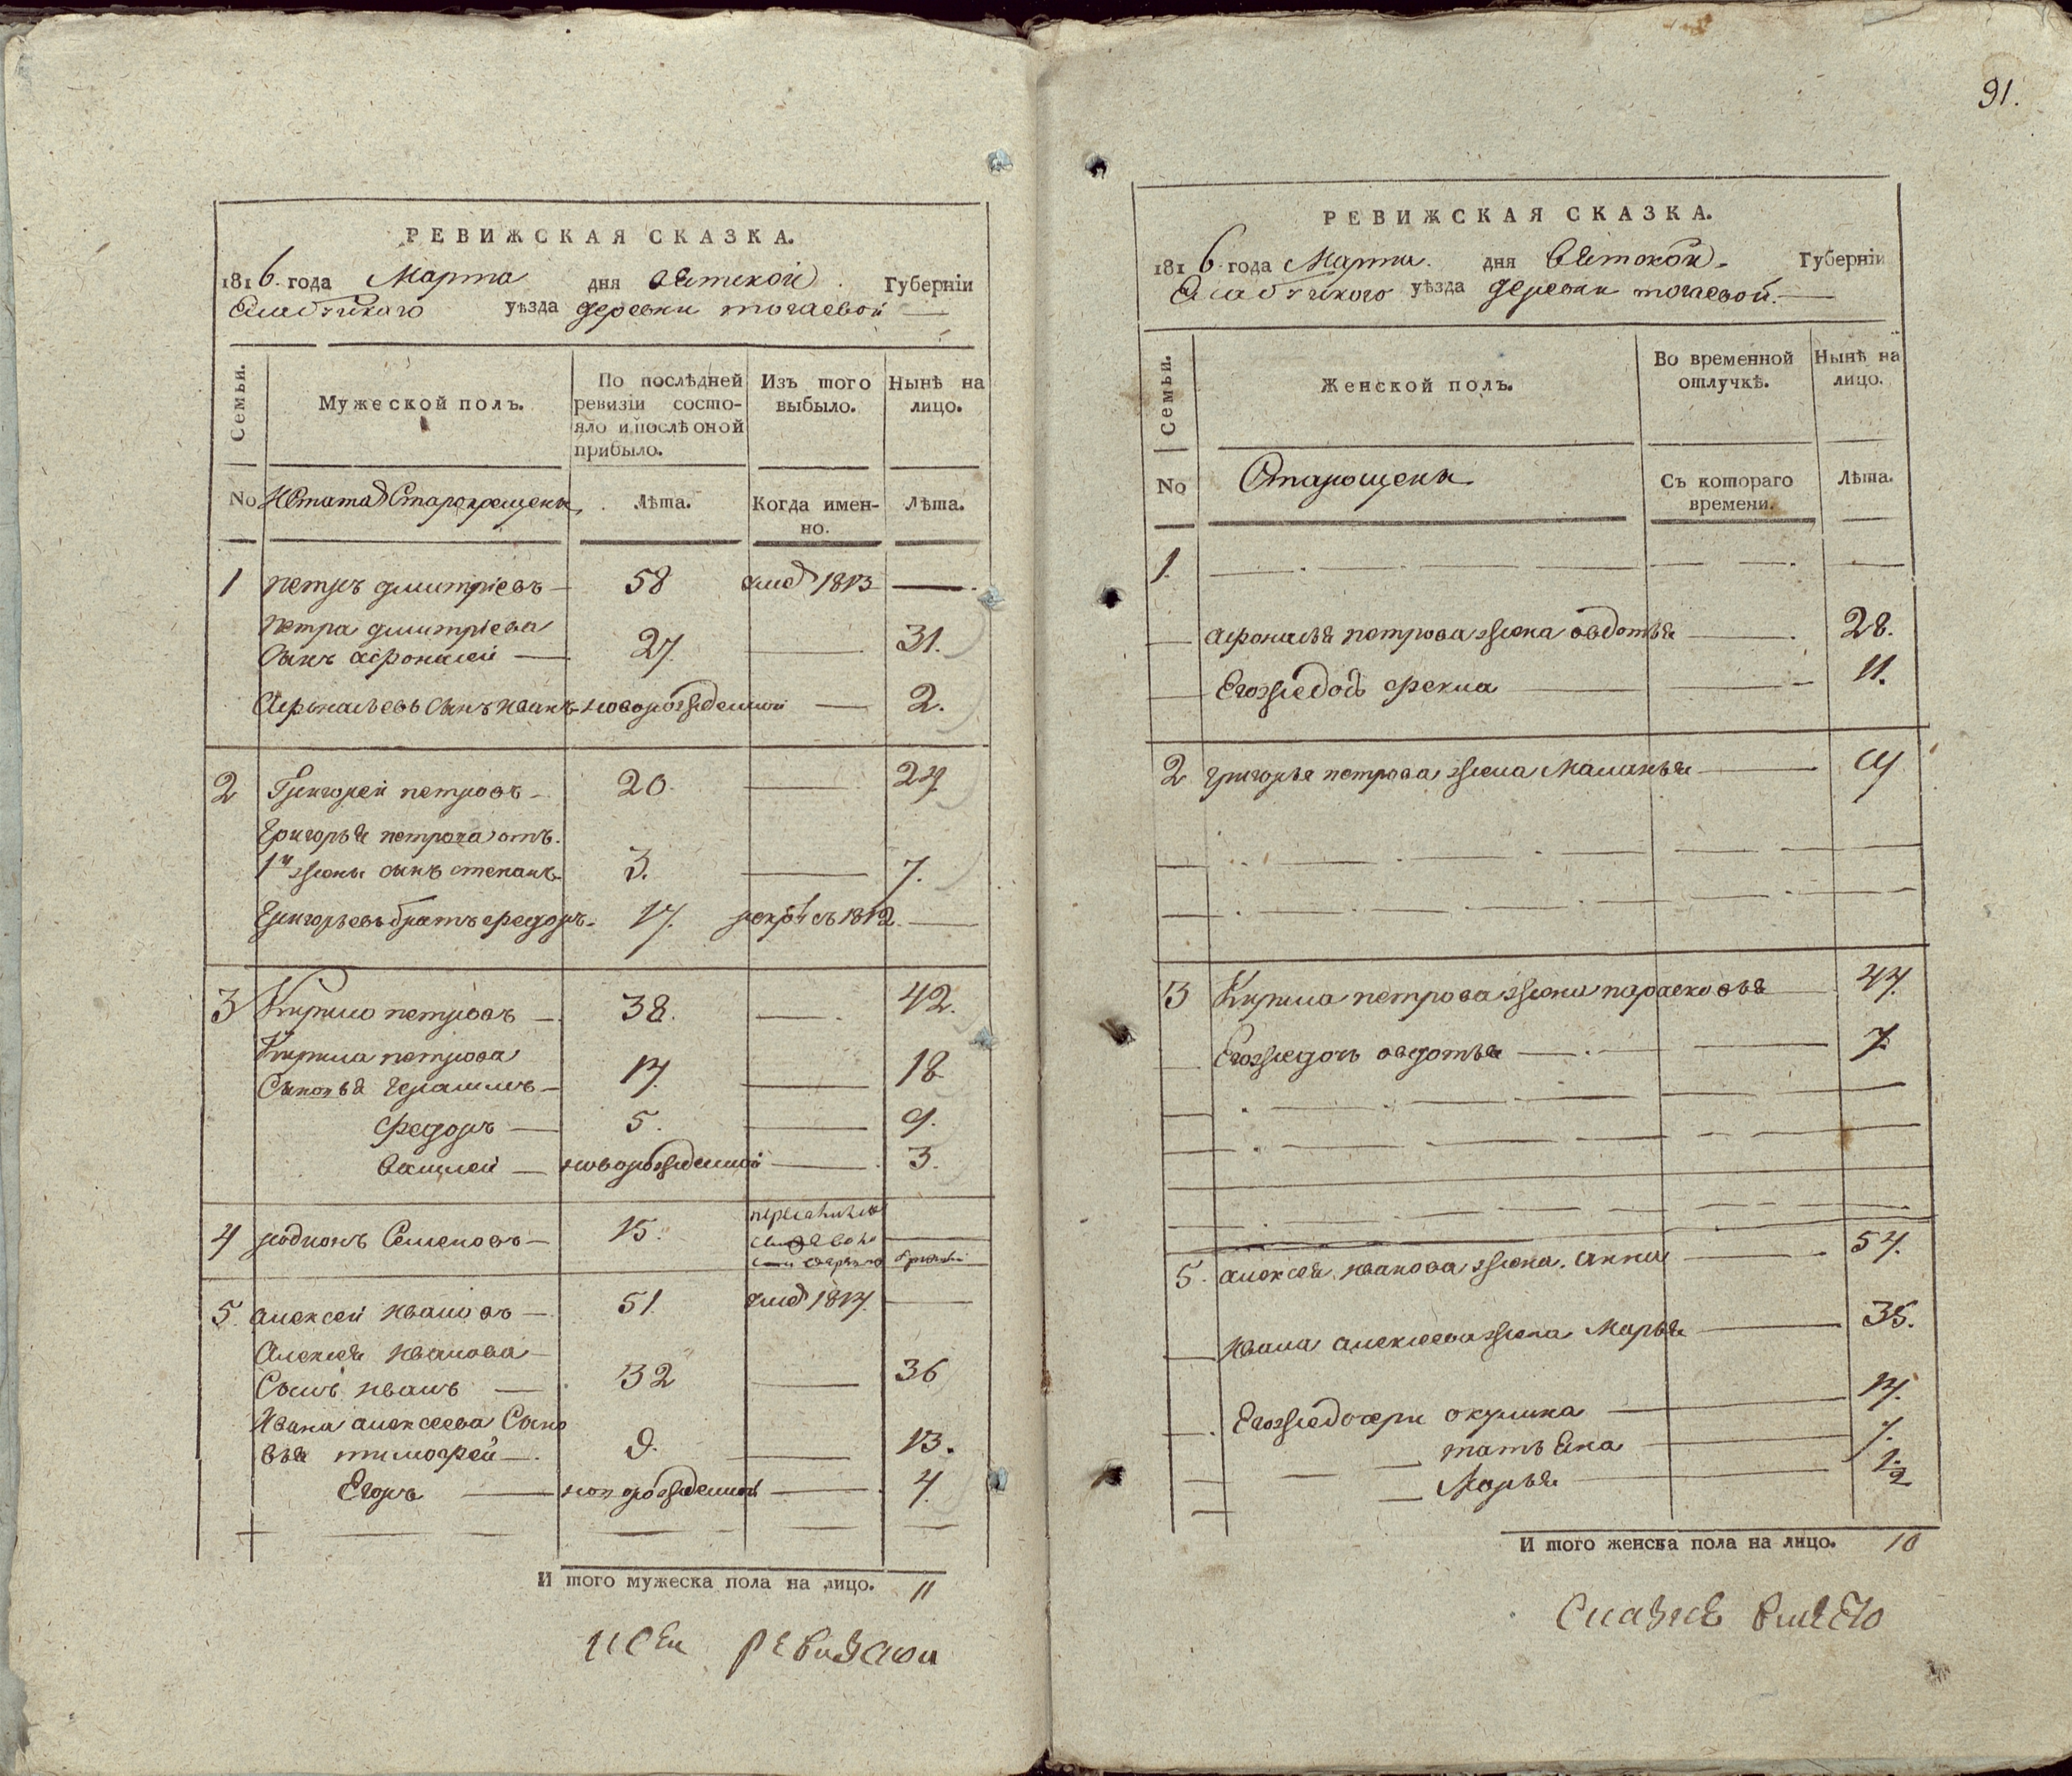 91.
РЕВИЖСКАЯ СКАЗКА.
1816 года Марта дня Вятской Губерніи
Елабужскаго уѣзда деревни тогаевой
Семьи.
Мужеской полъ.
По послѣдней ревизіи состояло и послѣ оной прибыло.
Изъ того выбыло.
Нынѣ на лицо.
No Старокрещены
Лѣта.
Когда именно.
Лѣта.
1 петръ дмитріевъ 58 1813
петра дмитріева
сынъ афонасей 27 31.
Афонасьевъ сынъ иванъ новорожденной 2.
2 Григорей петровъ 20. 24
Григорья петрова отъ
1й жены сынъ степанъ 3. 7.
Григорьевъ братъ федоръ 17. 1812
3 Кирило петровъ 38. 42.
Кирила петрова
Сыновья Герасимъ 14 18
федоръ 5. 9.
василей новорожденной 3.
4 родионъ Семеновъ 15.
5 алексей ивановъ 51 1814
Алексея иванова
Сынъ иванъ 32 36
Ивана алексеева Сыно
вья тимофей 9. 13.
Егоръ новорожденной 4
И того мужеска пола на лицо. 11
ревизской
РЕВИЖСКАЯ СКАЗКА.
1816 года Марта дня Вятской Губерніи
Елабужскаго уѣзда деревни тогаевой.
Семьи.
Женской полъ.
Во временной отлучкѣ.
Нынѣ на лицо.
No
Съ котораго времени.
Лѣта.
1.
афонасья петрова жена авдотья 28.
Егожъ дочь фекла 11.
2 григорья петрова жена Маланья
3 Кирила петрова жена парасковья 44.
Егожъ дочь авдотья 7.
5. алексея иванова жена анна 54.
ивана алексеева жена Марья 35.
Егожъ дочери окулина 14.
татьяна 7.
Марья
И того женска пола на лицо. 10
Сказке вместо